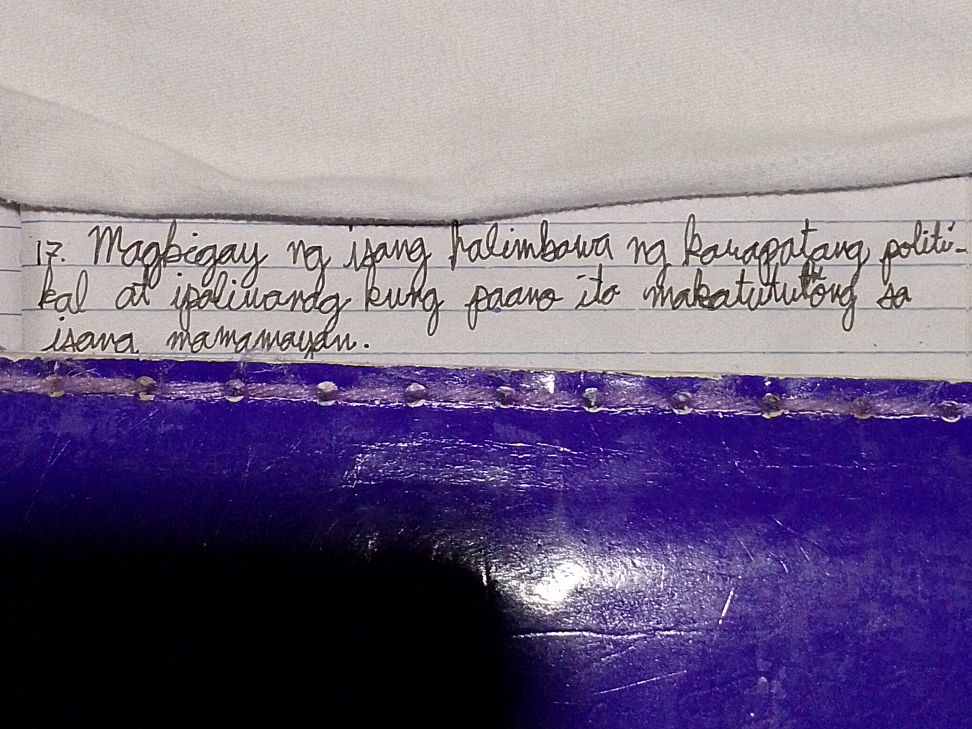 17. Magbigay ng isang halimbawa ng karapatang politi-
kal at ipaliwanag kung paano ito makatutulong sa
isang mamamayan.